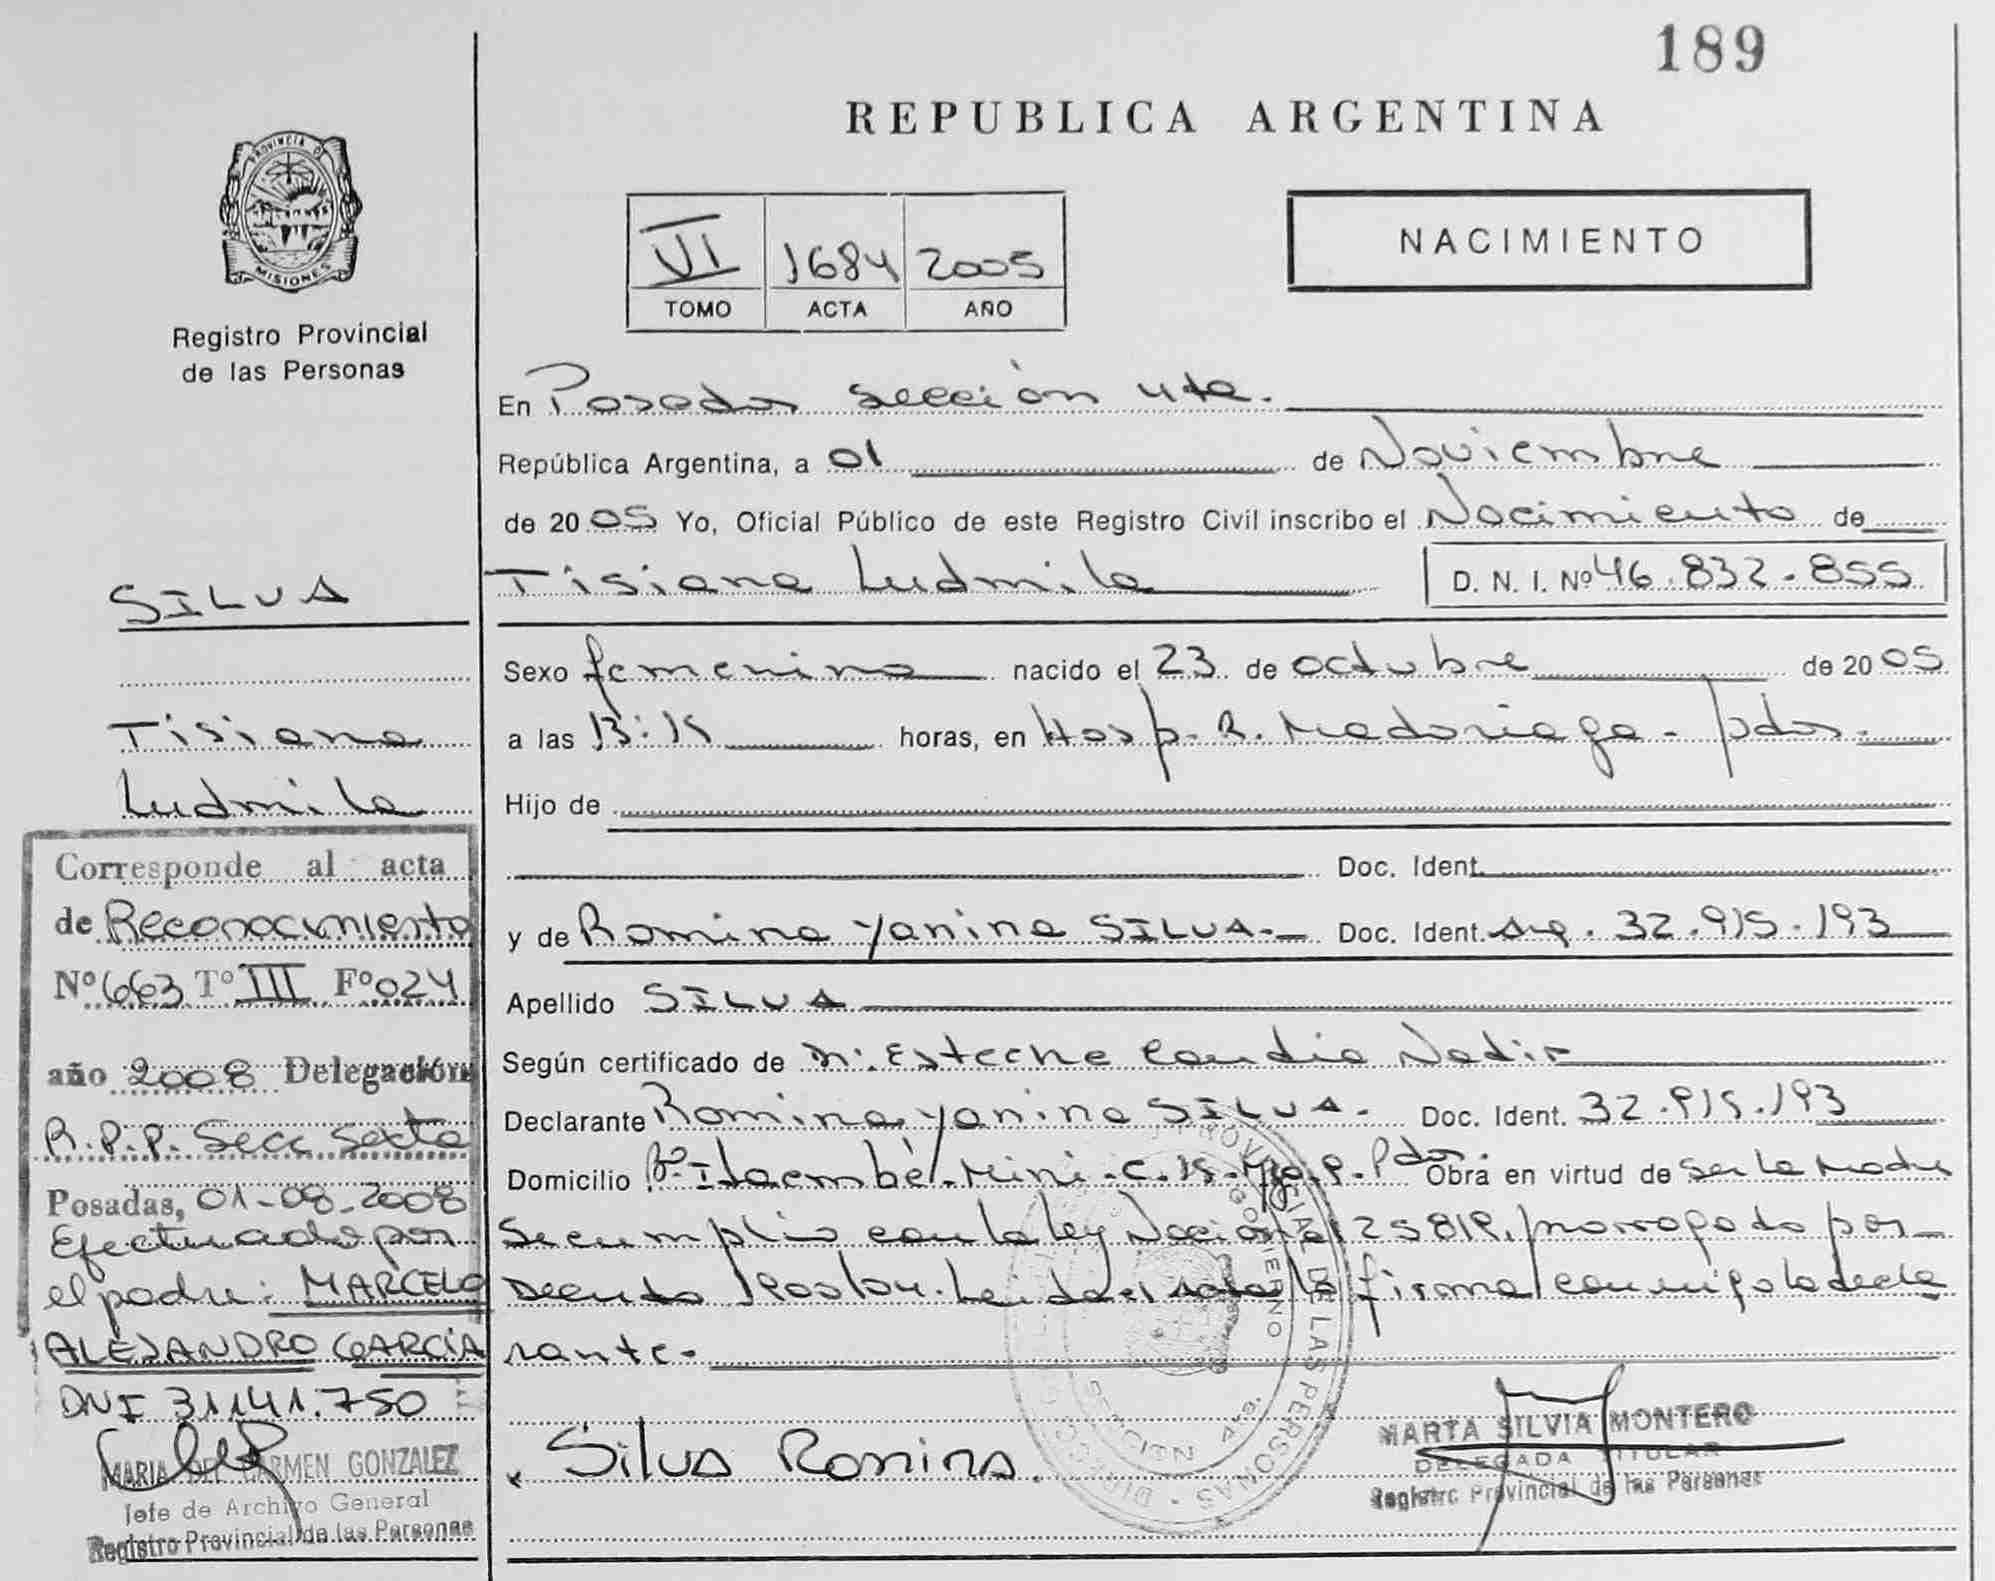 189
REPUBLICA ARGENTINA
PROVINCIA DE
MISIONES
Registro Provincial
de las Personas
VI 1684 2005
TOMO ACTA AÑO
NACIMIENTO
En Posadas sección 4ta.
República Argentina, a 01 de Noviembre
de 2005 Yo, Oficial Público de este Registro Civil inscribo el Nacimiento de
Tisiana Ludmila D. N. I. Nº 46.832.855
Sexo femenino nacido el 23 de octubre de 2005
a las 13:15 horas, en Hosp. R. Madariaga - Pdas.
Hijo de
Doc. Ident.
y de Romina Yanina SILVA.- Doc. Ident. Arg. 32.915.193
Apellido SILVA
Según certificado de Esteche Claudia Nadir
Declarante Romina Yanina SILVA. Doc. Ident. 32.915.193
Domicilio Bº Itaembé Mini - C. 15 - Pdas. Obra en virtud de ser la madre
Se cumplio con la ley Nacional 25819, prorrogado por
Decreto 1900/04. Leida el acta la firma conmigo la decla
rante.-
Silva Romina.
MARTA SILVIA MONTERO
DELEGADA TITULAR
Registro Provincial de las Personas
SILVA
Tisiana
Ludmila
Corresponde al acta
de Reconocimiento
Nº 663 Tº III Fº 024
año 2008 Delegación
R.P.P. Secc sexta
Posadas, 01-08-2008
Efectuado por
el padre: MARCELO
ALEJANDRO GARCÍA
DNI 31.141.750
MARIA DEL CARMEN GONZALEZ
Jefe de Archivo General
Registro Provincial de las Personas